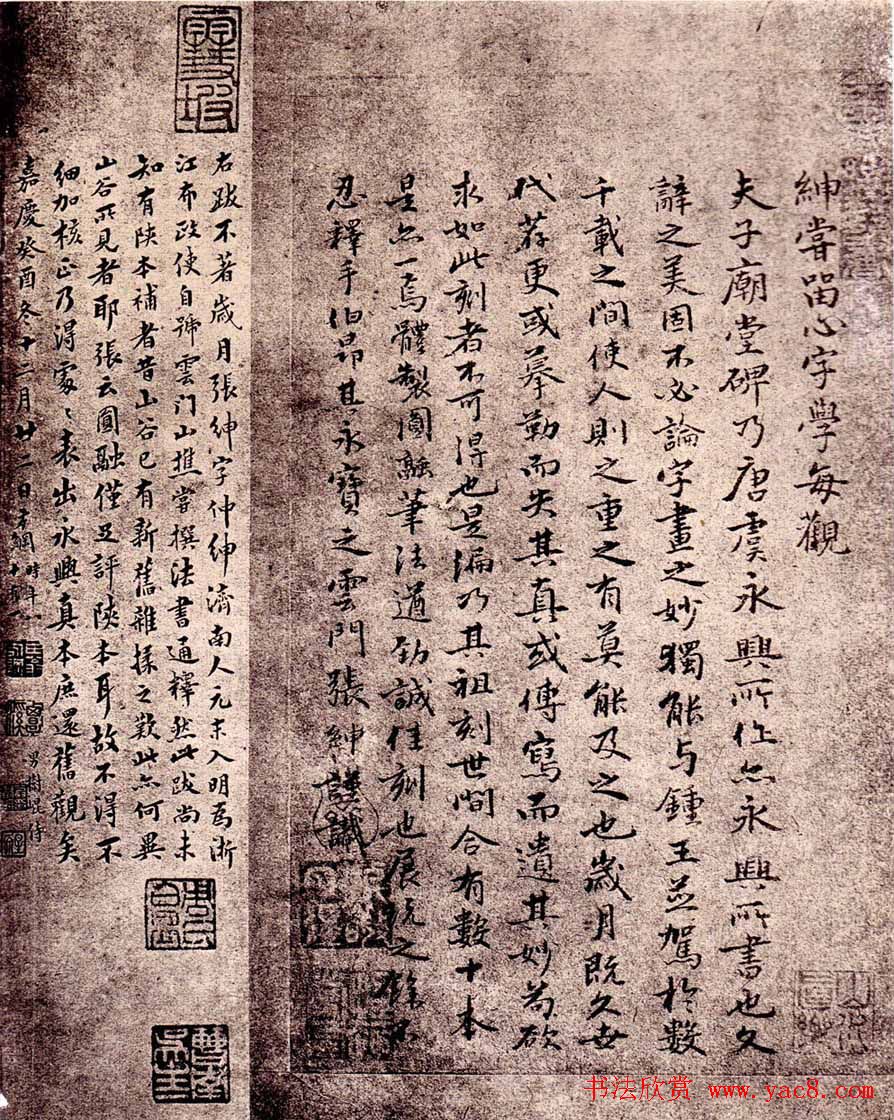 紳嘗留心字學每觀
夫子廟堂碑乃唐虞永興所作亦永興所書也文
辭之美固不必論字畫之妙獨能与鍾王並駕於數
千載之間使人則之重之有莫能及之也歲月既久世
代荐更或摹勒而失其真或傳寫而遺其妙苟欲
求如此刻者不可得也是編乃其祖刻世間合有數十本
是亦一焉體製圓融筆法遒勁誠佳刻也展玩之餘不
忍釋手伯昂其永寶之雲門張紳謹識
雪坡
右跋不著歲月張紳字仲紳濟南人元末入明為浙
江布政使自號雲门山樵嘗撰法書通釋然此跋尚未
知有陝本補者昔山谷已有新舊雜揉之歎此亦何異
山谷所見者耶張云圓融僅足評陝本耳故不得不
細加核正乃得處〻表出永興真本庶還舊觀矣
嘉慶癸酉冬十二月廿二日方綱時年
男樹崐侍
书法欣赏 www.yac8.com